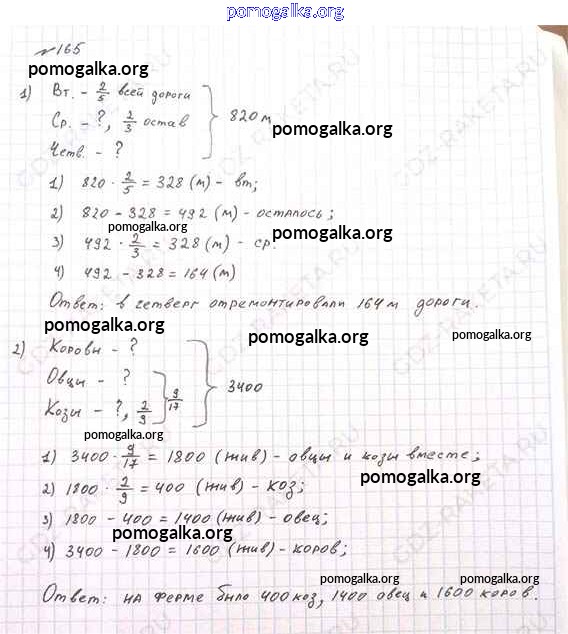 pomogalka.org
№165
pomogalka.org
1) Вт. - 2/5 всей дороги
Ср. - ?, 2/3 остав
Четв. - ?
820 м
pomogalka.org
1) 820 · 2/5 = 328 (м) - вт;
2) 820 - 328 = 492 (м) - осталось;
pomogalka.org
3) 492 · 2/3 = 328 (м) - ср.
pomogalka.org
4) 492 - 328 = 164 (м)
Ответ: в четверг отремонтировали 164 м дороги.
pomogalka.org
pomogalka.org
pomogalka.org
2) Коровы - ?
Овцы - ?
Козы - ?, 2/9
9/17
3400
pomogalka.org
1) 3400 · 9/17 = 1800 (жив) - овцы и козы вместе;
pomogalka.org
2) 1800 · 2/9 = 400 (жив) - коз;
3) 1800 - 400 = 1400 (жив) - овец;
pomogalka.org
4) 3400 - 1800 = 1600 (жив) - коров;
pomogalka.org
pomogalka.org
pomogalka.org
Ответ: на ферме было 400 коз, 1400 овец и 1600 коров.
GDZ-RAKETA.RU